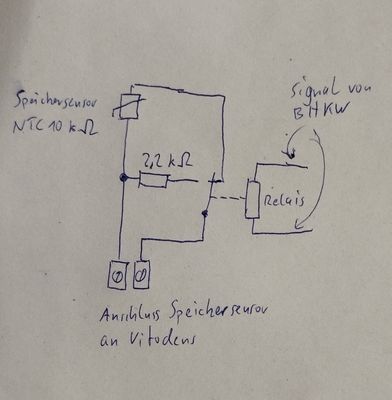 Speichersensor
NTC 10 kΩ
Signal von
BHKW
2,2 kΩ
Relais
Anschluss Speichersensor
an Vitodens